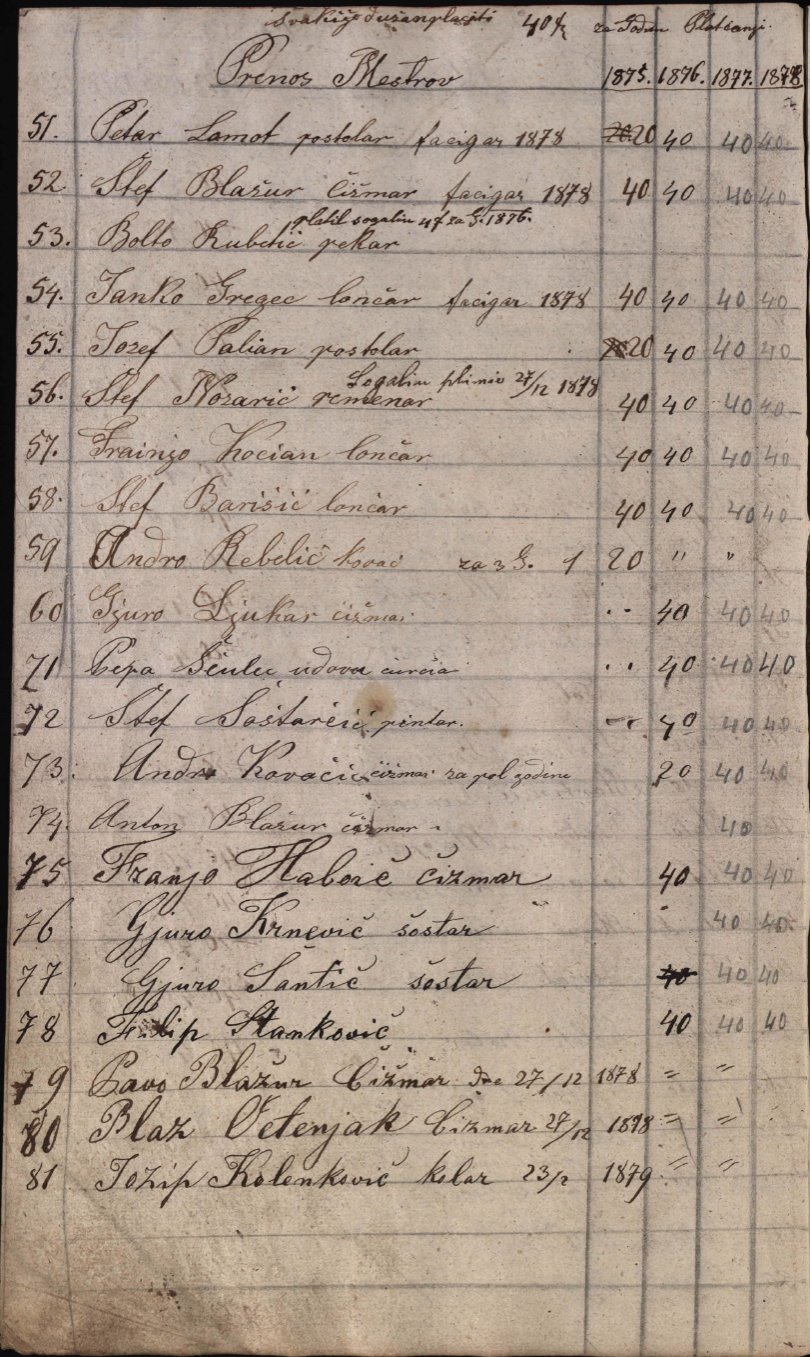 svaki je dužan platiti 40 f za Godinu Plaćanji.
Prenos Meštrov 1875. 1876. 1877. 1878
51. Petar Lamot postolar facigar 1878 20 40 40 40
52 Štef Blažur Čižmar facigar 1878 40 40 40 40
platil 4f za G. 1876.
53. Bolto Rubetić pekar
54. Janko Gregec lončar facigar 1878 40 40 40 40
55. Jozef Palian postolar 20 40 40 40
27/12 1878
56. Štef remenar 40 40 40 40
57. Frainjo Kocian lončar 40 40 40 40
58. Stef Barišić lončar 40 40 40 40
59 Andro Rebelić kovač za 3 G. 1 20 " "
60 Gjuro Ljukar čižmar .. 40 40 40
71 Pepa udova .. 40 40 40
72 Štef Šoštarčić pintar. 40 40 40
73. Andro Kovačić čižmar za pol godine 20 40 40
74. Anton Blažur čižmar 40
75 Franjo Haboić čizmar 40 40 40
76 Gjuro Krnević šostar 40 40
77 Gjuro Šantić šostar 40 40 40
78 Filip Stanković 40 40 40
79 Pavo Blažur Čižmar 27/12 1878 = "
80 Blaz Vetenjak Čizmar 27/12 1878 = "
81 Jozip Kolenković kolar 23/2 1879 " "